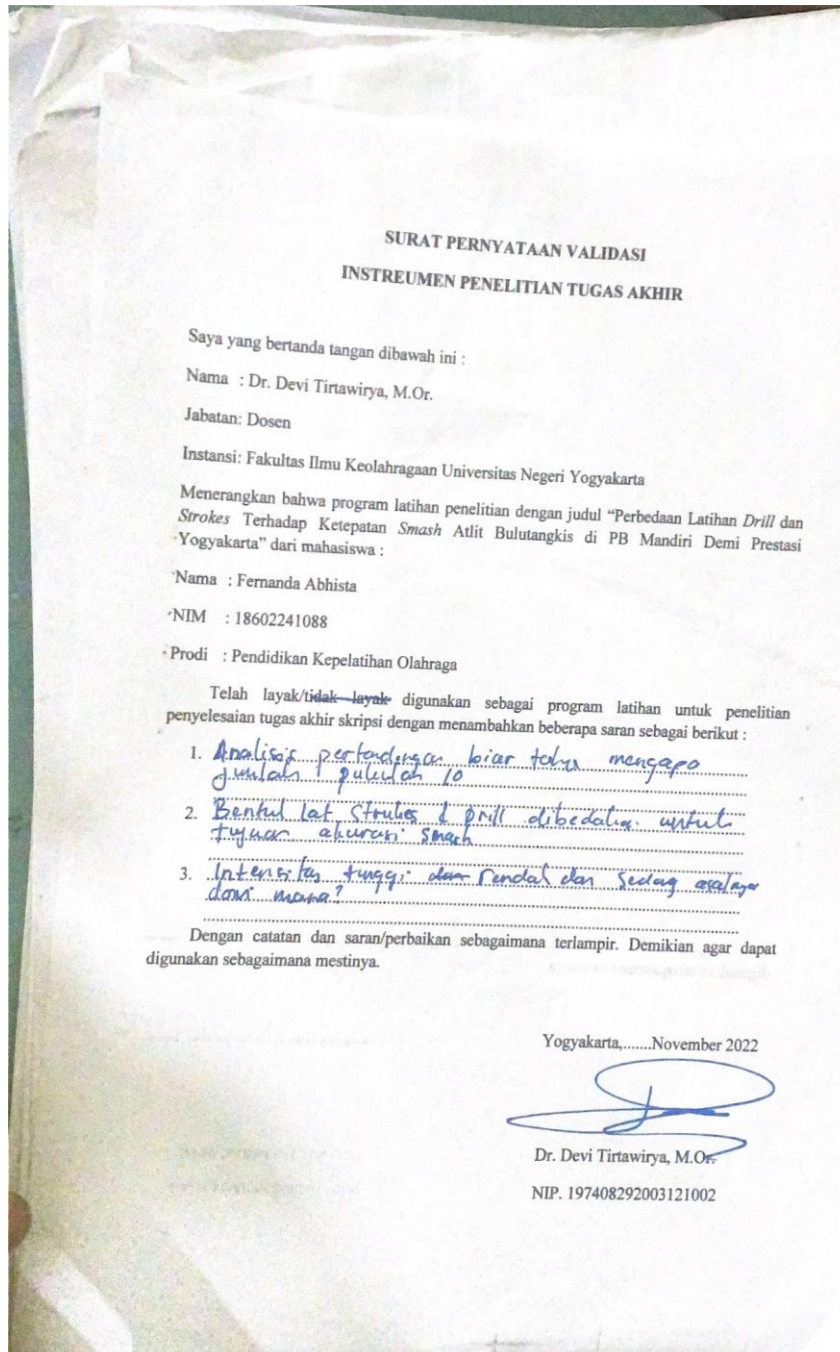 SURAT PERNYATAAN VALIDASI
INSTREUMEN PENELITIAN TUGAS AKHIR
Saya yang bertanda tangan dibawah ini :
Nama : Dr. Devi Tirtawirya, M.Or.
Jabatan: Dosen
Instansi: Fakultas Ilmu Keolahragaan Universitas Negeri Yogyakarta
Menerangkan bahwa program latihan penelitian dengan judul “Perbedaan Latihan Drill dan
Strokes Terhadap Ketepatan Smash Atlit Bulutangkis di PB Mandiri Demi Prestasi
Yogyakarta” dari mahasiswa :
Nama : Fernanda Abhista
NIM : 18602241088
Prodi : Pendidikan Kepelatihan Olahraga
Telah layak/tidak layak digunakan sebagai program latihan untuk penelitian
penyelesaian tugas akhir skripsi dengan menambahkan beberapa saran sebagai berikut :
1. Analisis pertandingan biar tahu mengapa
jumlah pukulan 10
2. Bentuk Lat Strokes & Drill dibedakan untuk
tujuan akurasi smash
3. Intensitas tinggi dan rendah dan sedang asalnya
dari mana?
Dengan catatan dan saran/perbaikan sebagaimana terlampir. Demikian agar dapat
digunakan sebagaimana mestinya.
Yogyakarta,.......November 2022
Dr. Devi Tirtawirya, M.Or.
NIP. 197408292003121002